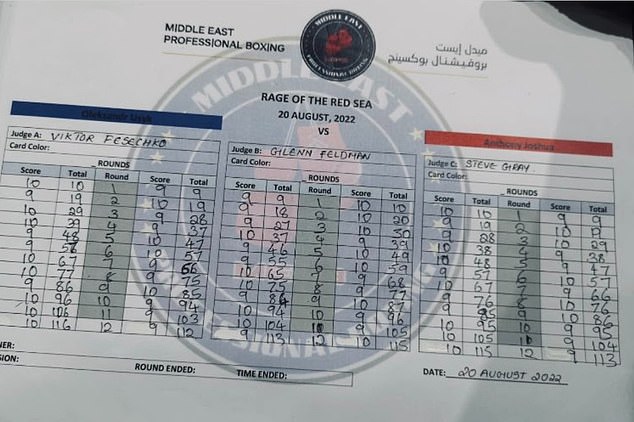 MIDDLE EAST
PROFESSIONAL BOXING
ميدل إيست
بروفيشنال بوكسينج
RAGE OF THE RED SEA
20 AUGUST, 2022
VS
Oleksandr Usyk
Anthony Joshua
Judge A: VIKTOR FESECHKO
Card Color:
_ROUNDS
Score Total Round Score Total
10 10 1 9 9
9 19 2 10 19
10 29 3 9 28
10 39 4 9 37
9 48 5 10 47
9 6 10 57
10 67 7 9 66
10 77 8 9 75
9 86 9 10 85
10 96 10 9 94
10 106 11 9 103
10 116 12 9 112
Judge B: GILENN FELDMAN
Card Color:
_ROUNDS
Score Total Round Score Total
9 9 1 10 10
9 18 2 10 20
9 27 3 10 30
10 37 4 9 39
9 46 5 10 49
9 55 6 10 59
10 65 7 9 68
10 75 8 9 77
9 84 9 10
10 94 10 9
10 104 11 9
9 113 12 10 115
Judge C: STEVE GRAY
Card Color:
_ROUNDS
Score Total Round Score Total
10 10 1 9 9
9 19 2 10 19
9 28 3 10 29
10 38 4 9 38
10 48 5 9 47
9 57 6 10 57
10 67 7 9 66
9 76 8 10 76
9 85 9 10 86
10 95 10 9 95
10 105 11 9 104
10 115 12 9 113
NER:
SION:
ROUND ENDED:
TIME ENDED:
DATE: 20 AUGUST 2022
MIDDLE EAST